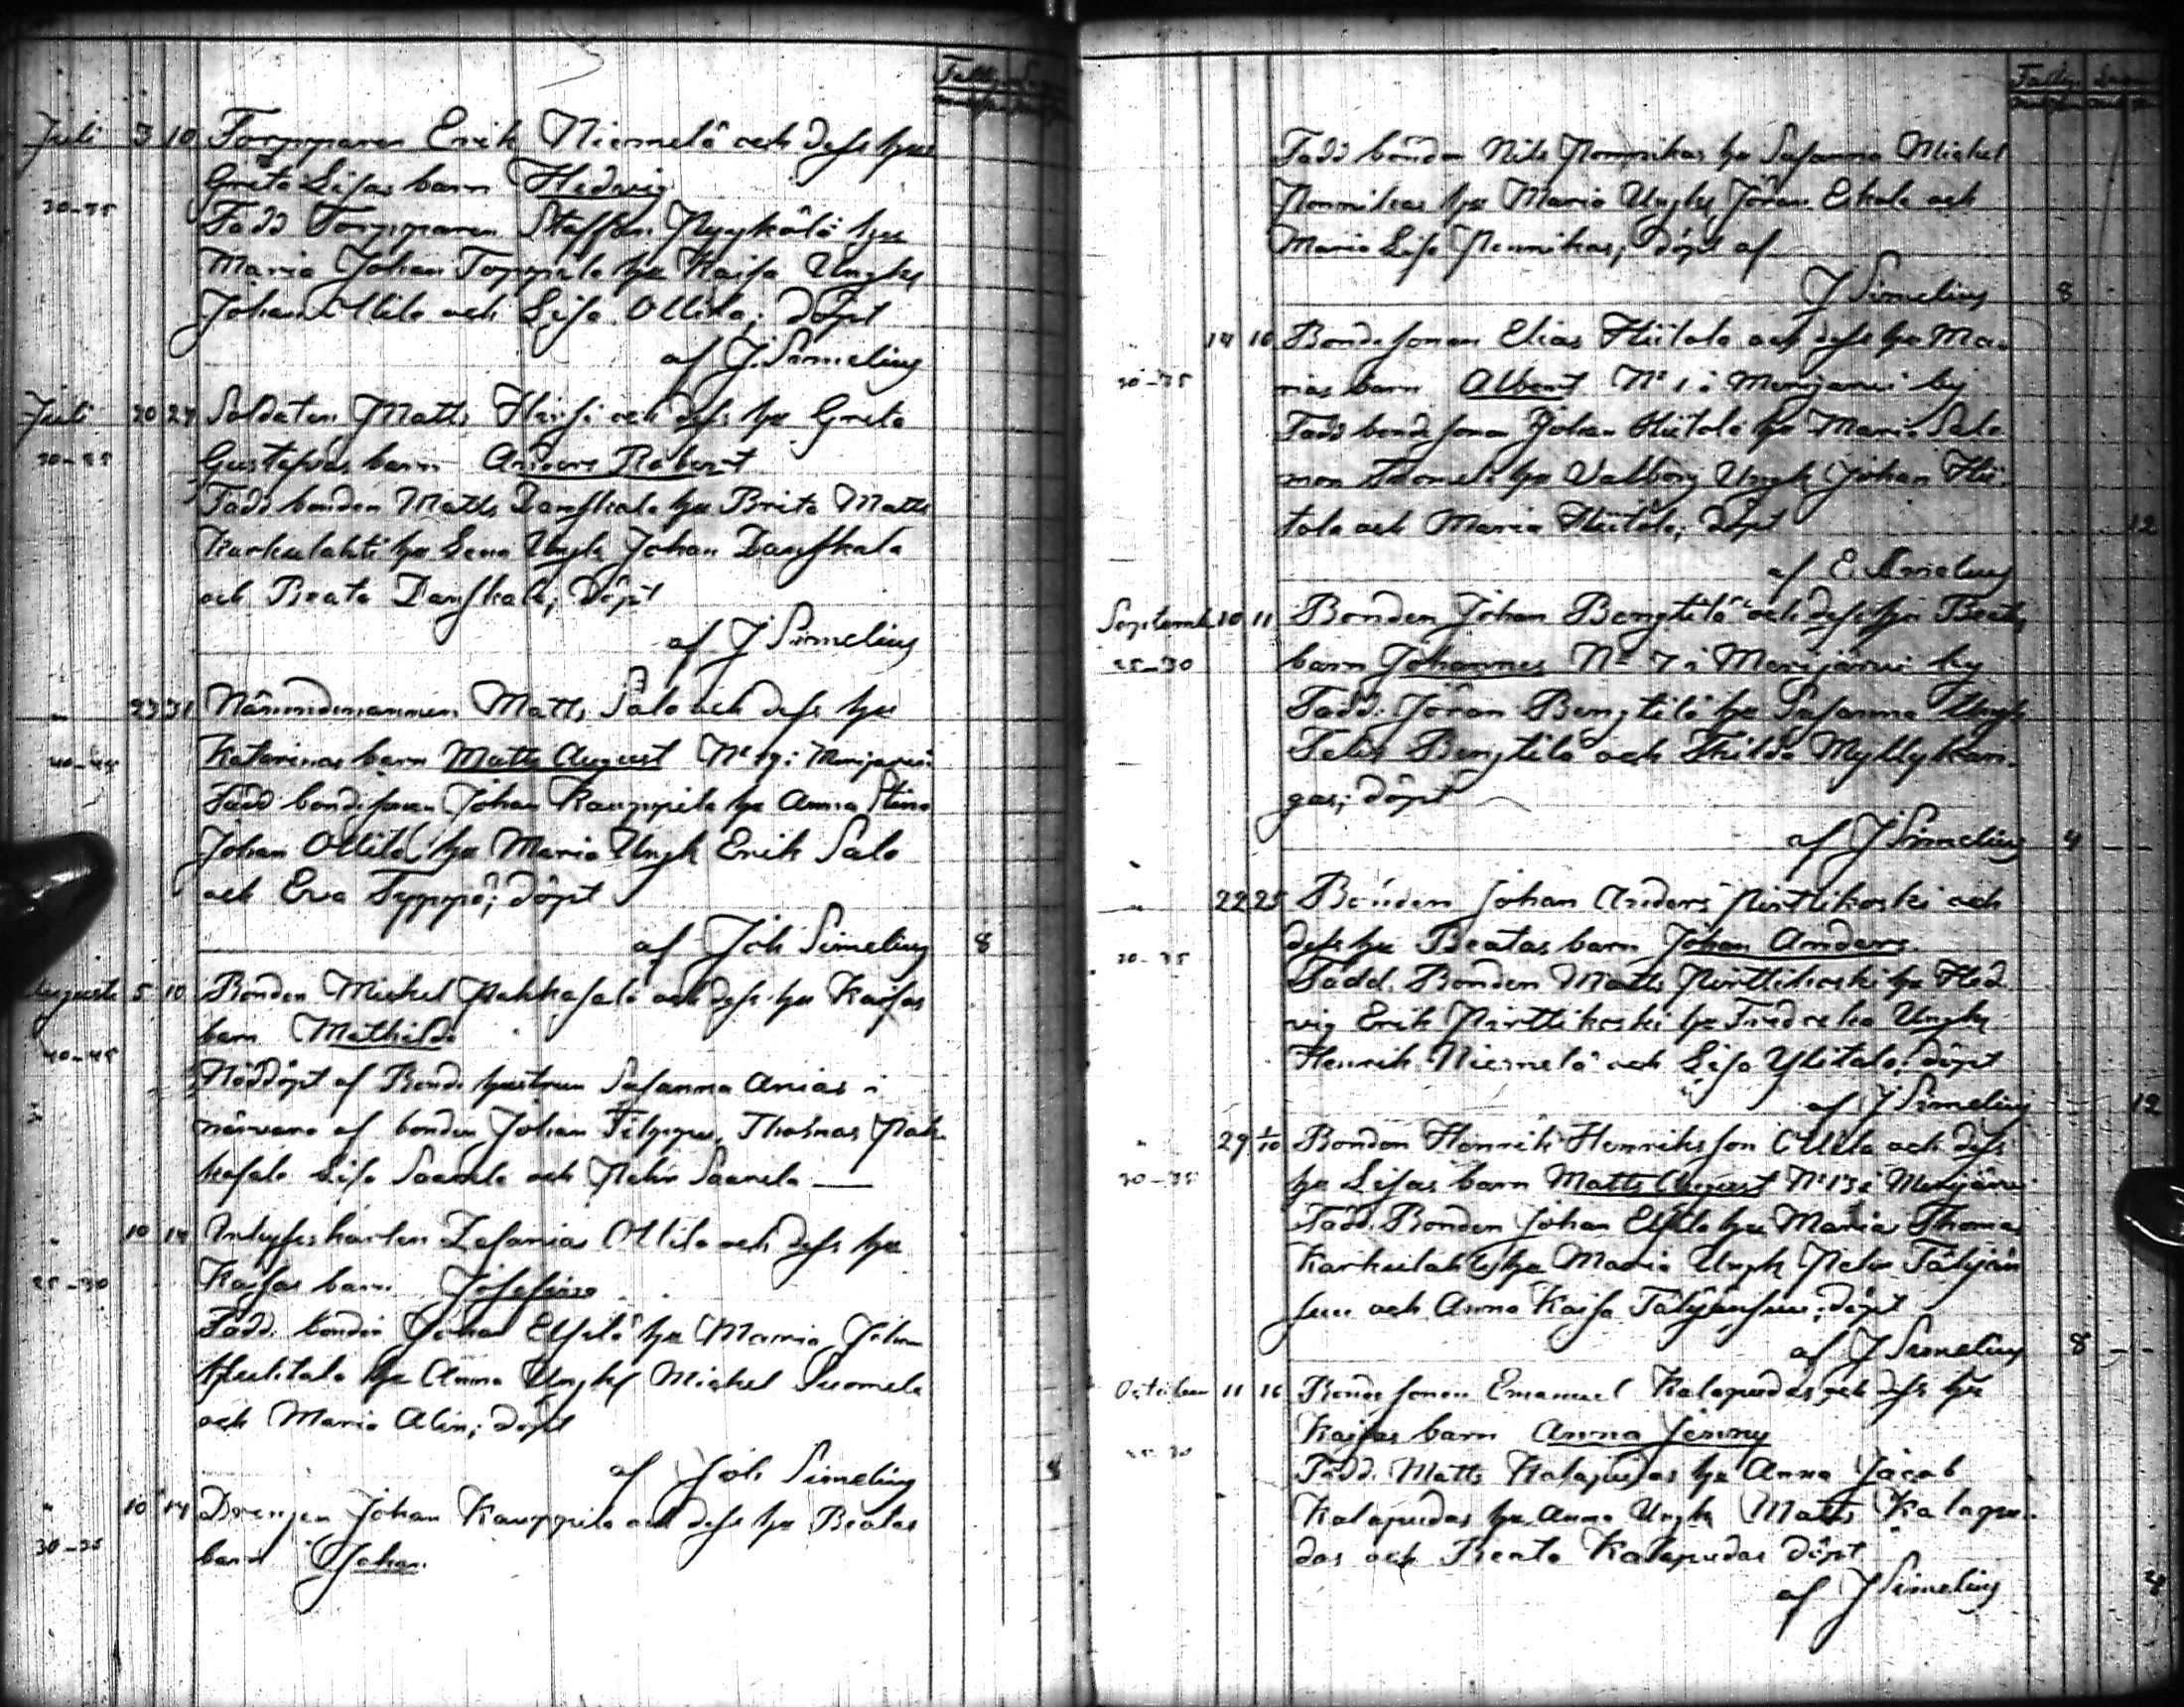 Juli 3 10 Torpparen Erik Niemelä och dess hu
Greta Lisas barn Hedvig
30-35
Fadd Torpparen Staffan Pyykölä hu
Maria Johan Toppila hu Kaisa Ungk
Johan Ollila och Lisa Ollila; döpt
af J. Simelius
Juli 20 24 Soldaten Matts och dess hu Greta
30-35 Gustafvas barn Anders Robert
Fadd bonden Matts Danskala hu Brita Matts
Karhulahti hu Lena Ungk Johan Danskala
och Beata Danskala; döpt
af J Simelius
" 23 31 Nämndemannen Matts Salo och dess hu
40-45 Katarinas barn Matts August No 19 i Merijärvi
Fadd bondesonen Johan Kauppila hu Anna Stina
Johan Ollila hu Maria Ungk Erik Salo
och Eva Typpö; döpt
af Joh Simelius 8
Augusti 5 10 Bonden Mickel Pahkasalo och dess hu Kaisas
barn Mathilda
40-45
Nöddöpt af Bonde hustrun Susanna Anias i
närvaro af bonden Johan Filppu, Thomas Pah-
kasalo Lisa Saarela och Petter Saarela —
" 10 14 Inhyseskarlen Zefanias Ollila och dess hu
25-30 Kaisas barn Josefina
Fadd. bonden Johan Elfilä hu Maria Johan
hu Anna Ungk Mickel Suomela
och Maria Alin; döpt
af Joh Simelius 8
" 10 14 Drengen Johan Kauppila och dess hu Beatas
30-35 barn Johan
Fadd bonden Nils Pennikas hu Susanna Mickel
Pennikas hu Maria Ungk Jöran Eskola och
Maria Lisa Pennikas; döpt af
J Simelius 8
14 16 Bondesonen Elias Hiitola och dess hu Ma-
30-35 rias barn Albert No 1 i Merijärvi by
Fadd bondesonen Johan Hiitola hu Maria Salo
mon hu Valborg Ungk Johan Hii-
tola och Maria Hiitola; döpt 12
af E. Simelius
Septemb 10 11 Bonden Johan Bengtilä och dess hu Beatas
25-30 barn Johannes No 7 i Merijärvi by
Fadd. Jöran Bengtilä hu Susanna Ungk
Felix Bengtilä och Hilda Myllykan-
gas; döpt
af J Simelius 4
" 22 25 Bonden Johan Anders Pirttikoski och
30-35 dess hu Beatas barn Johan Anders
Fadd. Bonden Matts Pirttikoski hu Hed
vig Erik Pirttikoski hu Fredrika Ungk
Henrik Niemelä och Lisa Ylitalo, döpt
af J Simelius 12
" 29 1/10 Bonden Henrik Henriksson Ollila och dess
30-35 hu Lisas barn Matts August No 13 i Merijärvi
Fadd. Bonden Johan Elfilä hu Maria Thomas
Karhulahti hu Maria Ungk Petter Täljän
suu och Anna Kaisa Täljänsuu; döpt
af J Simelius 8
October 11 16 Bondesonen Emanuel Kalapudas och dess hu
25-30 Kaisas barn Anna Jenny
Fadd. Matts Kalapudas hu Anna Jacob
Kalapudas hu Anna Ungk Matts Kalapu-
das och Beata Kalapudas döpt
af J Simelius 4